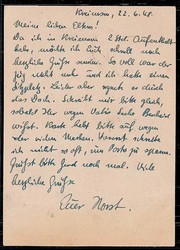 Kreiensen, 22.6.48.
Meine lieben Eltern!
Da ich in Kreiensen 2 Std. Aufenthalt
habe, möchte ich Euch schnell noch
herzliche Grüße senden. So voll war der
Zug nicht und ich hatte einen
Sitzplatz. Leider aber regnete es durch
das Dach. Schreibt mir bitte gleich,
sobald Ihr wegen Vatis
wißt. Karte bitte auf
oder Marken. Vorerst schreibe
ich nicht so oft, um Porto zu sparen.
Grüßt bitte Gerd noch mal. Viele
herzliche Grüße
Euer Horst.